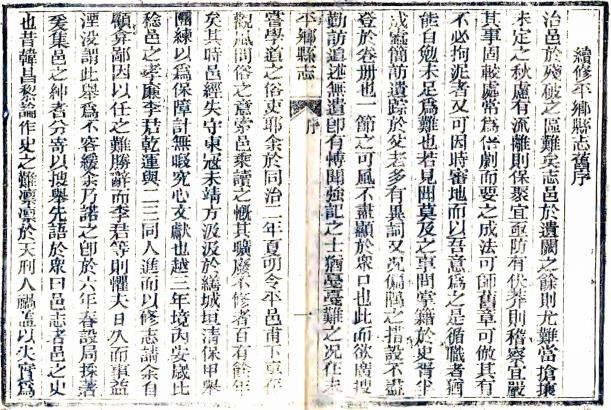 續修平鄉縣志舊序
治邑於殘破之區難矣志邑於遺闕之餘則尤難當搶攘
未定之秋慮有流離則保聚宜亟防有伏莽則稽察宜嚴
其事固較處常爲倍劇而要之成法可師舊章可倣其有
不必拘泥者又可因時審地而以吾意爲之是循職者猶
能自勉未足爲難也若見聞莫及之事問掌籍於史胥半
成竄簡訪遺踪於父老多有異詞又况偏隅之措設不盡
登於卷册也一節之可風不盡顯於衆口也此而欲廣搜
勤訪追述無遺卽有博聞強記之士猶戛戛難之况在未
平鄉縣志 序
嘗學道之俗吏耶余於同治二年夏叨令平邑甫下車在
觀風問俗之意索邑乘讀之慨其曠廢不修者百有餘年
矣其時邑經失守東寇未靖方汲汲於繕城垣清保甲舉
團練以爲保障計無暇究心文獻也越三年境內安歲比
稔邑之孝廉李君乾運與二三同人進而以修志請余自
顧弇鄙因以任之難勝辭而李君等則懼夫日久而事益
湮没謂此舉爲不容緩余乃諾之卽於六年春設局採
爰集邑之紳者分以搜舉先語於衆曰邑志者邑之史
也昔韓昌黎論作史之難凛凛於天刑人禍蓋以失實爲